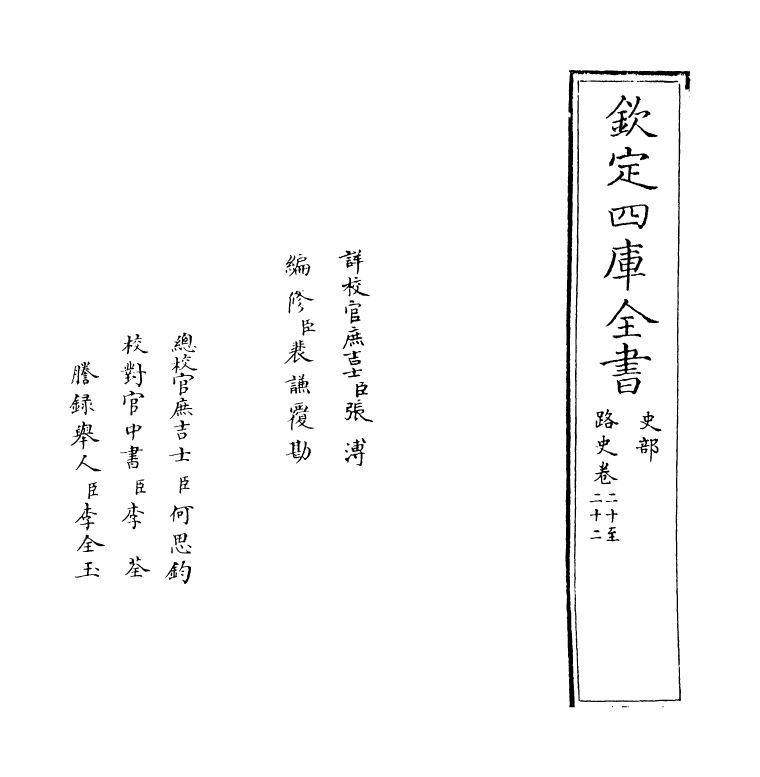 欽定四庫全書
史部
路史卷二十至
二十二
詳校官庶吉士臣張溥
編修臣裴謙覆勘
總校官庶吉士臣何思鈞
校對官中書臣李荃
謄録舉人臣李全玉